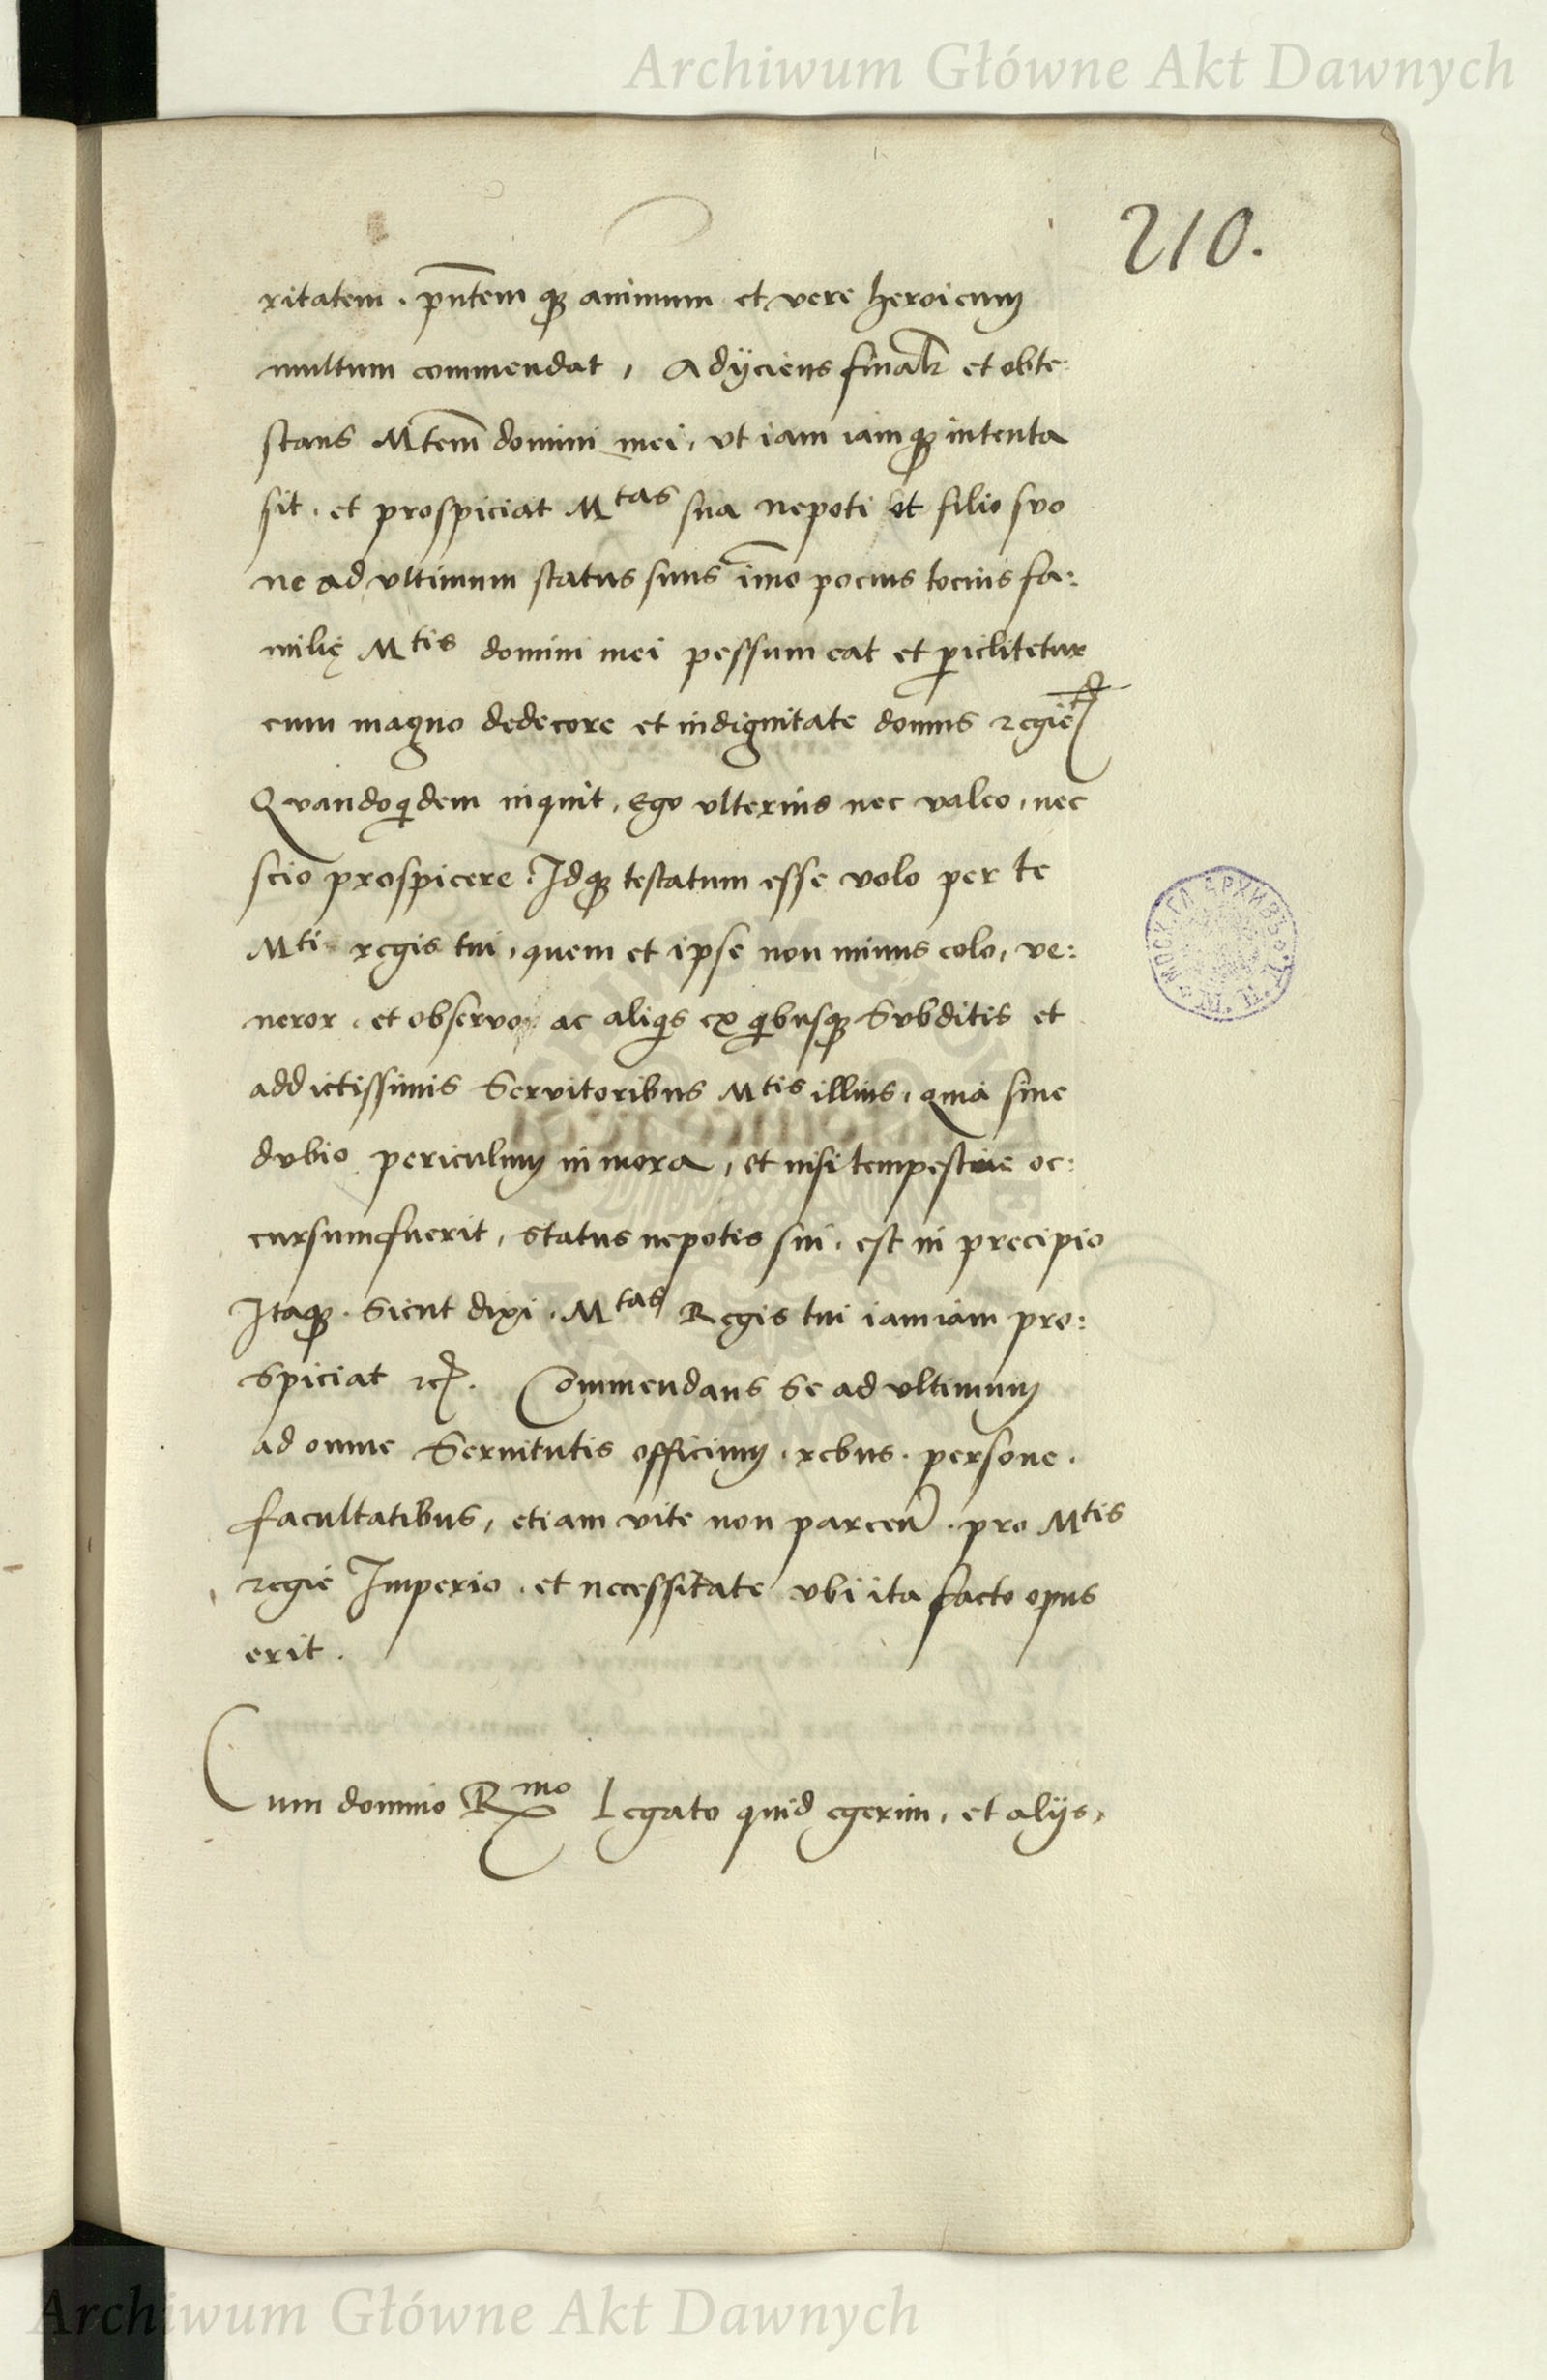 Archiwum Główne Akt Dawnych
210.
ritatem. pntem q3 animum et vere heroicum
multum commendat, Adÿciens finalr et obte:
stans Mtem domini mei, vt iam iamq3 intenta
sit, et prospiciat Mtas sua nepoti et filio suo
ne ad vltimum status suus imo pocius tocius fa:
milię Mtis domini mei pessum eat et periclitetur
cum magno dedecore et indignitate domus regie
Quandoqidem inquit, Ego vlterius nec valeo, nec
scio prospicere. Idq3 testatum esse volo per te
Mti regis tui, quem et ipse non minus colo, ve:
neror, et observo, ac aliqis ex qibusq3 Subditis et
addictissimis Servitoribus Mtis illius, quia sine
dubio periculum in mora, et nisi tempestive oc:
cursum fuerit, status nepotis sui, est in precipio
Itaq3. Sicut dixi. Mtas Regis tui iam iam pro:
Spiciat etc. Commendans Se ad vltimum
ad omne Servitutis officium, rebus. persone.
facultatibus, etiam vite non parcen. pro Mtis
regie Imperio, et necessitate vbi ita facto opus
erit.
Cum domino Rmo Legato quid egerim, et alÿs,
МОСК. ГЛ. АРХИВЪ
Archiwum Główne Akt Dawnych